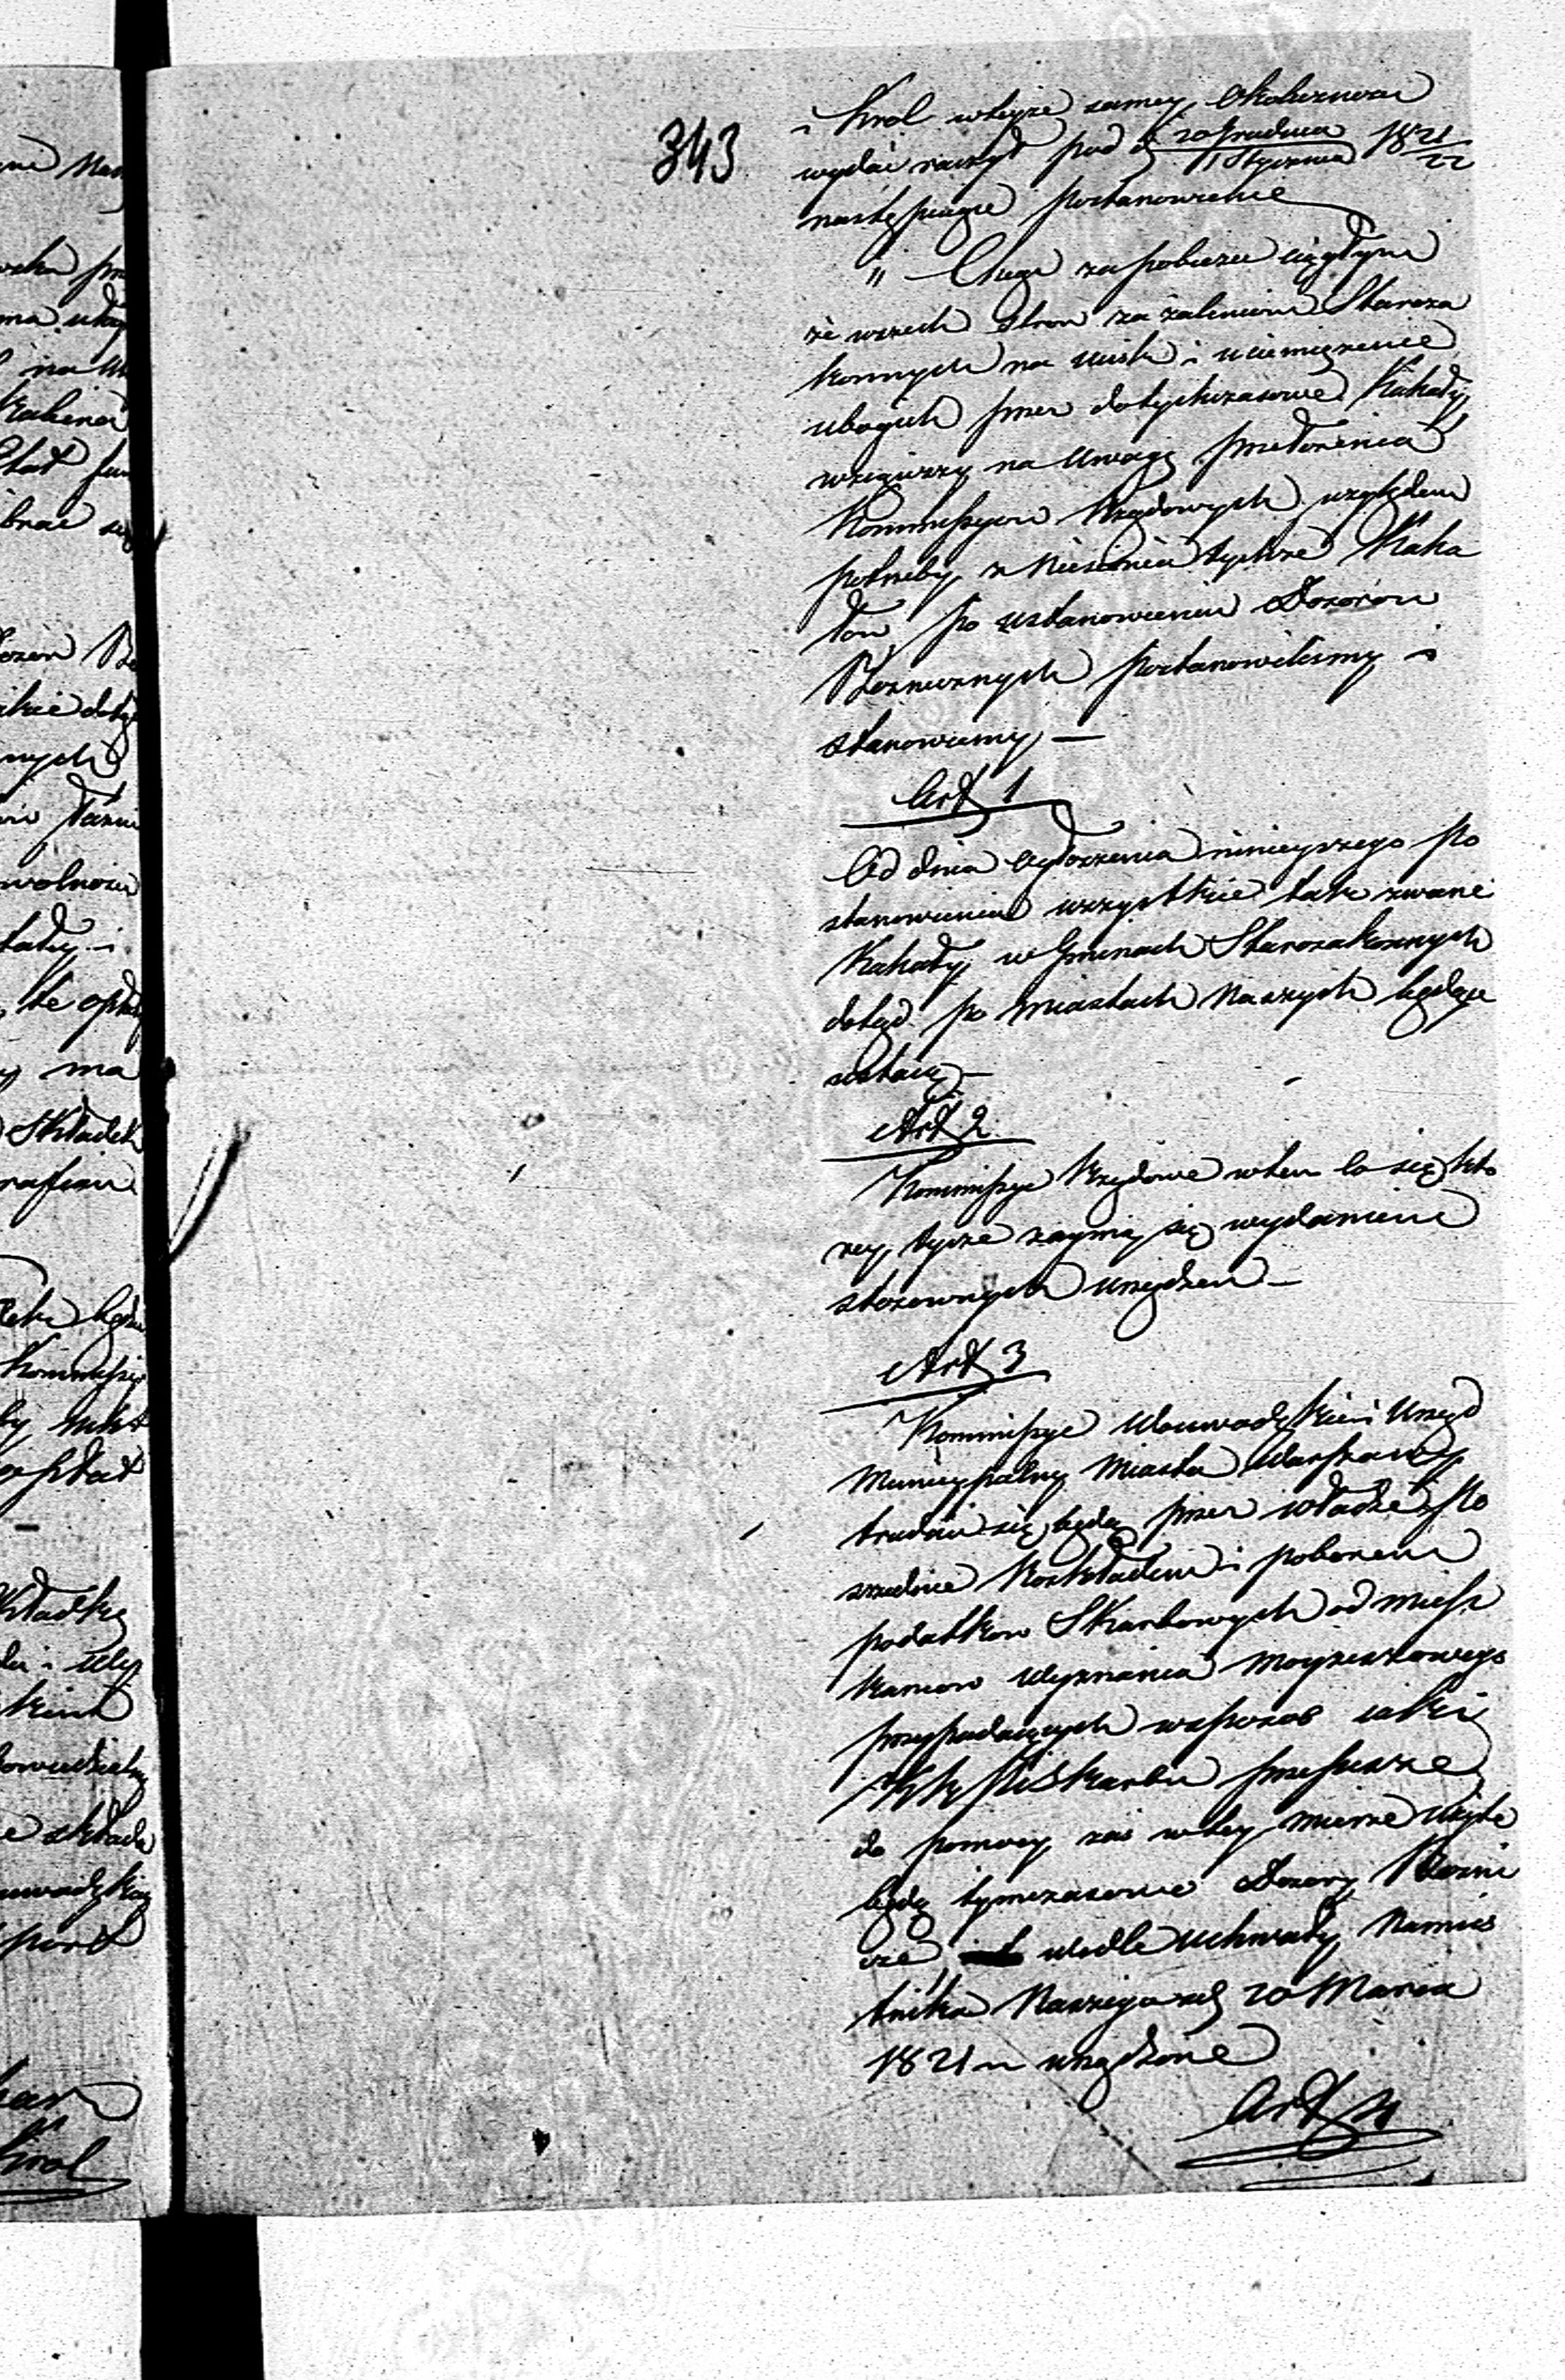 343
i Krol wteyże samey Okoliczności
wydać raczył pod d 20 Grudnia / 1 Stycznia 1821/22
następuiące postanowienie
" Chcąc zapobiedz ciągłym
ze wszech stron zażaleniom Staroza
konnych na ucisk i uciemiężenie
ubogich przez dotychczasowe Kahały
wziąwszy na uwagę przełożenia
Kommissyów Rządowych względem
potrzeby zniesienia tychże Kaha
łów po ustanowieniu Dozorów
Bożnicznych postanowiliśmy i
stanowiemy —
Art 1
Od dnia ogłoszenia ninieyszego po
stanowienia wszystkie tak zwane
Kahały w Gminach Starozakonnych
dotąd po miastach Naszych będące
ustaią —
Art 2
Kommissye Rządowe wtem co się któ
rey tycze zaymią się wydaniem
stosownych urządzeń —
Art 3
Kommissye Woiewodzkie i Urząd
Municypalny Miasta Warszawy
trudnić się będą przez władze po
srzednie Rozkładem i poborem
podatkow Skarbowych od miesz
kancow Wyznania Moyżeszowego
przypadaiących wsposob iaki
KR PiSkarbu przepisze
do pomocy zaś wtey mierze użyte
będą tymczasowie Dozory Bożni
cze wedle uchwały Namies
tnika Naszego zd 20 Marca
1821 r urządzone
Art 4